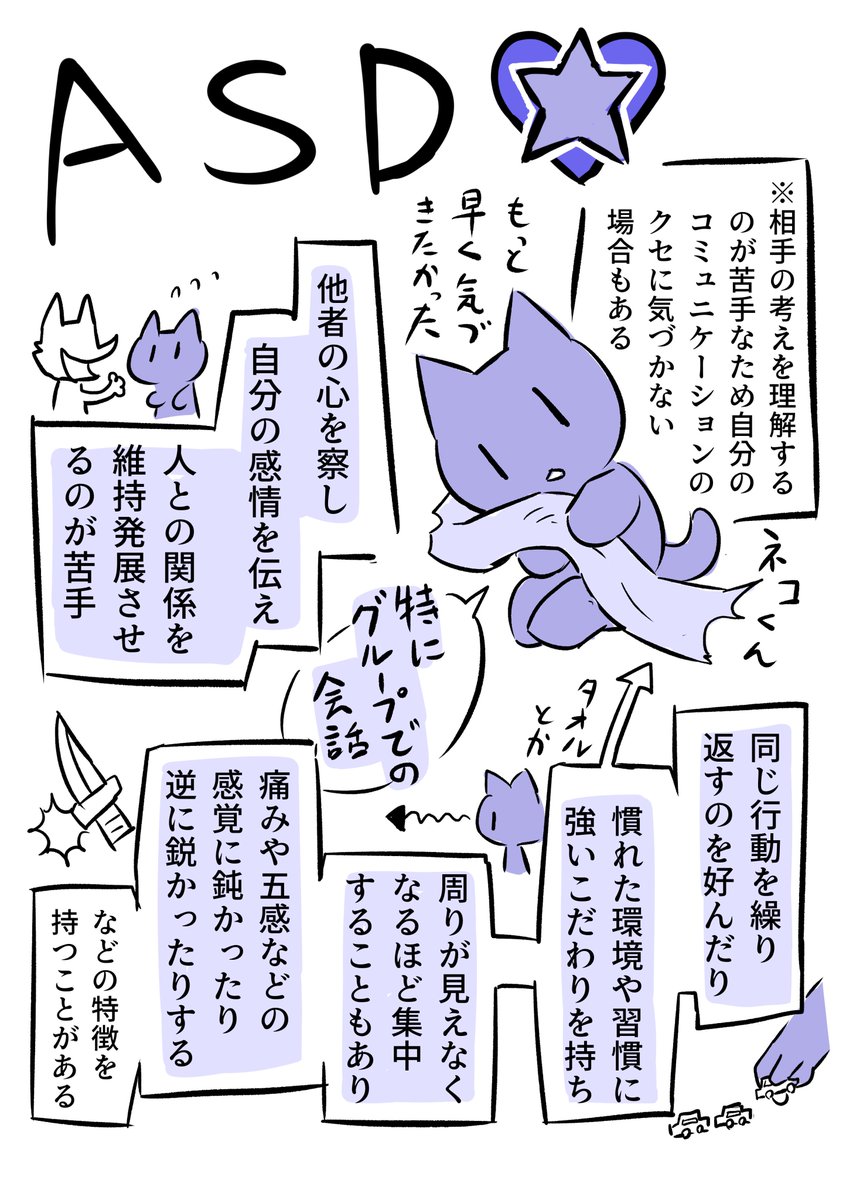 ASD
※相手の考えを理解する
のが苦手なため自分の
コミュニケーションの
クセに気づかない
場合もある
もっと
早く気づ
きたかった
ネコくん
他者の心を察し
自分の感情を伝え
人との関係を
維持発展させ
るのが苦手
特に
グループでの
会話
同じ行動を繰り
返すのを好んだり
慣れた環境や習慣に
強いこだわりを持ち
タオル
とか
周りが見えなく
なるほど集中
することもあり
痛みや五感などの
感覚に鈍かったり
逆に鋭かったりする
などの特徴を
持つことがある